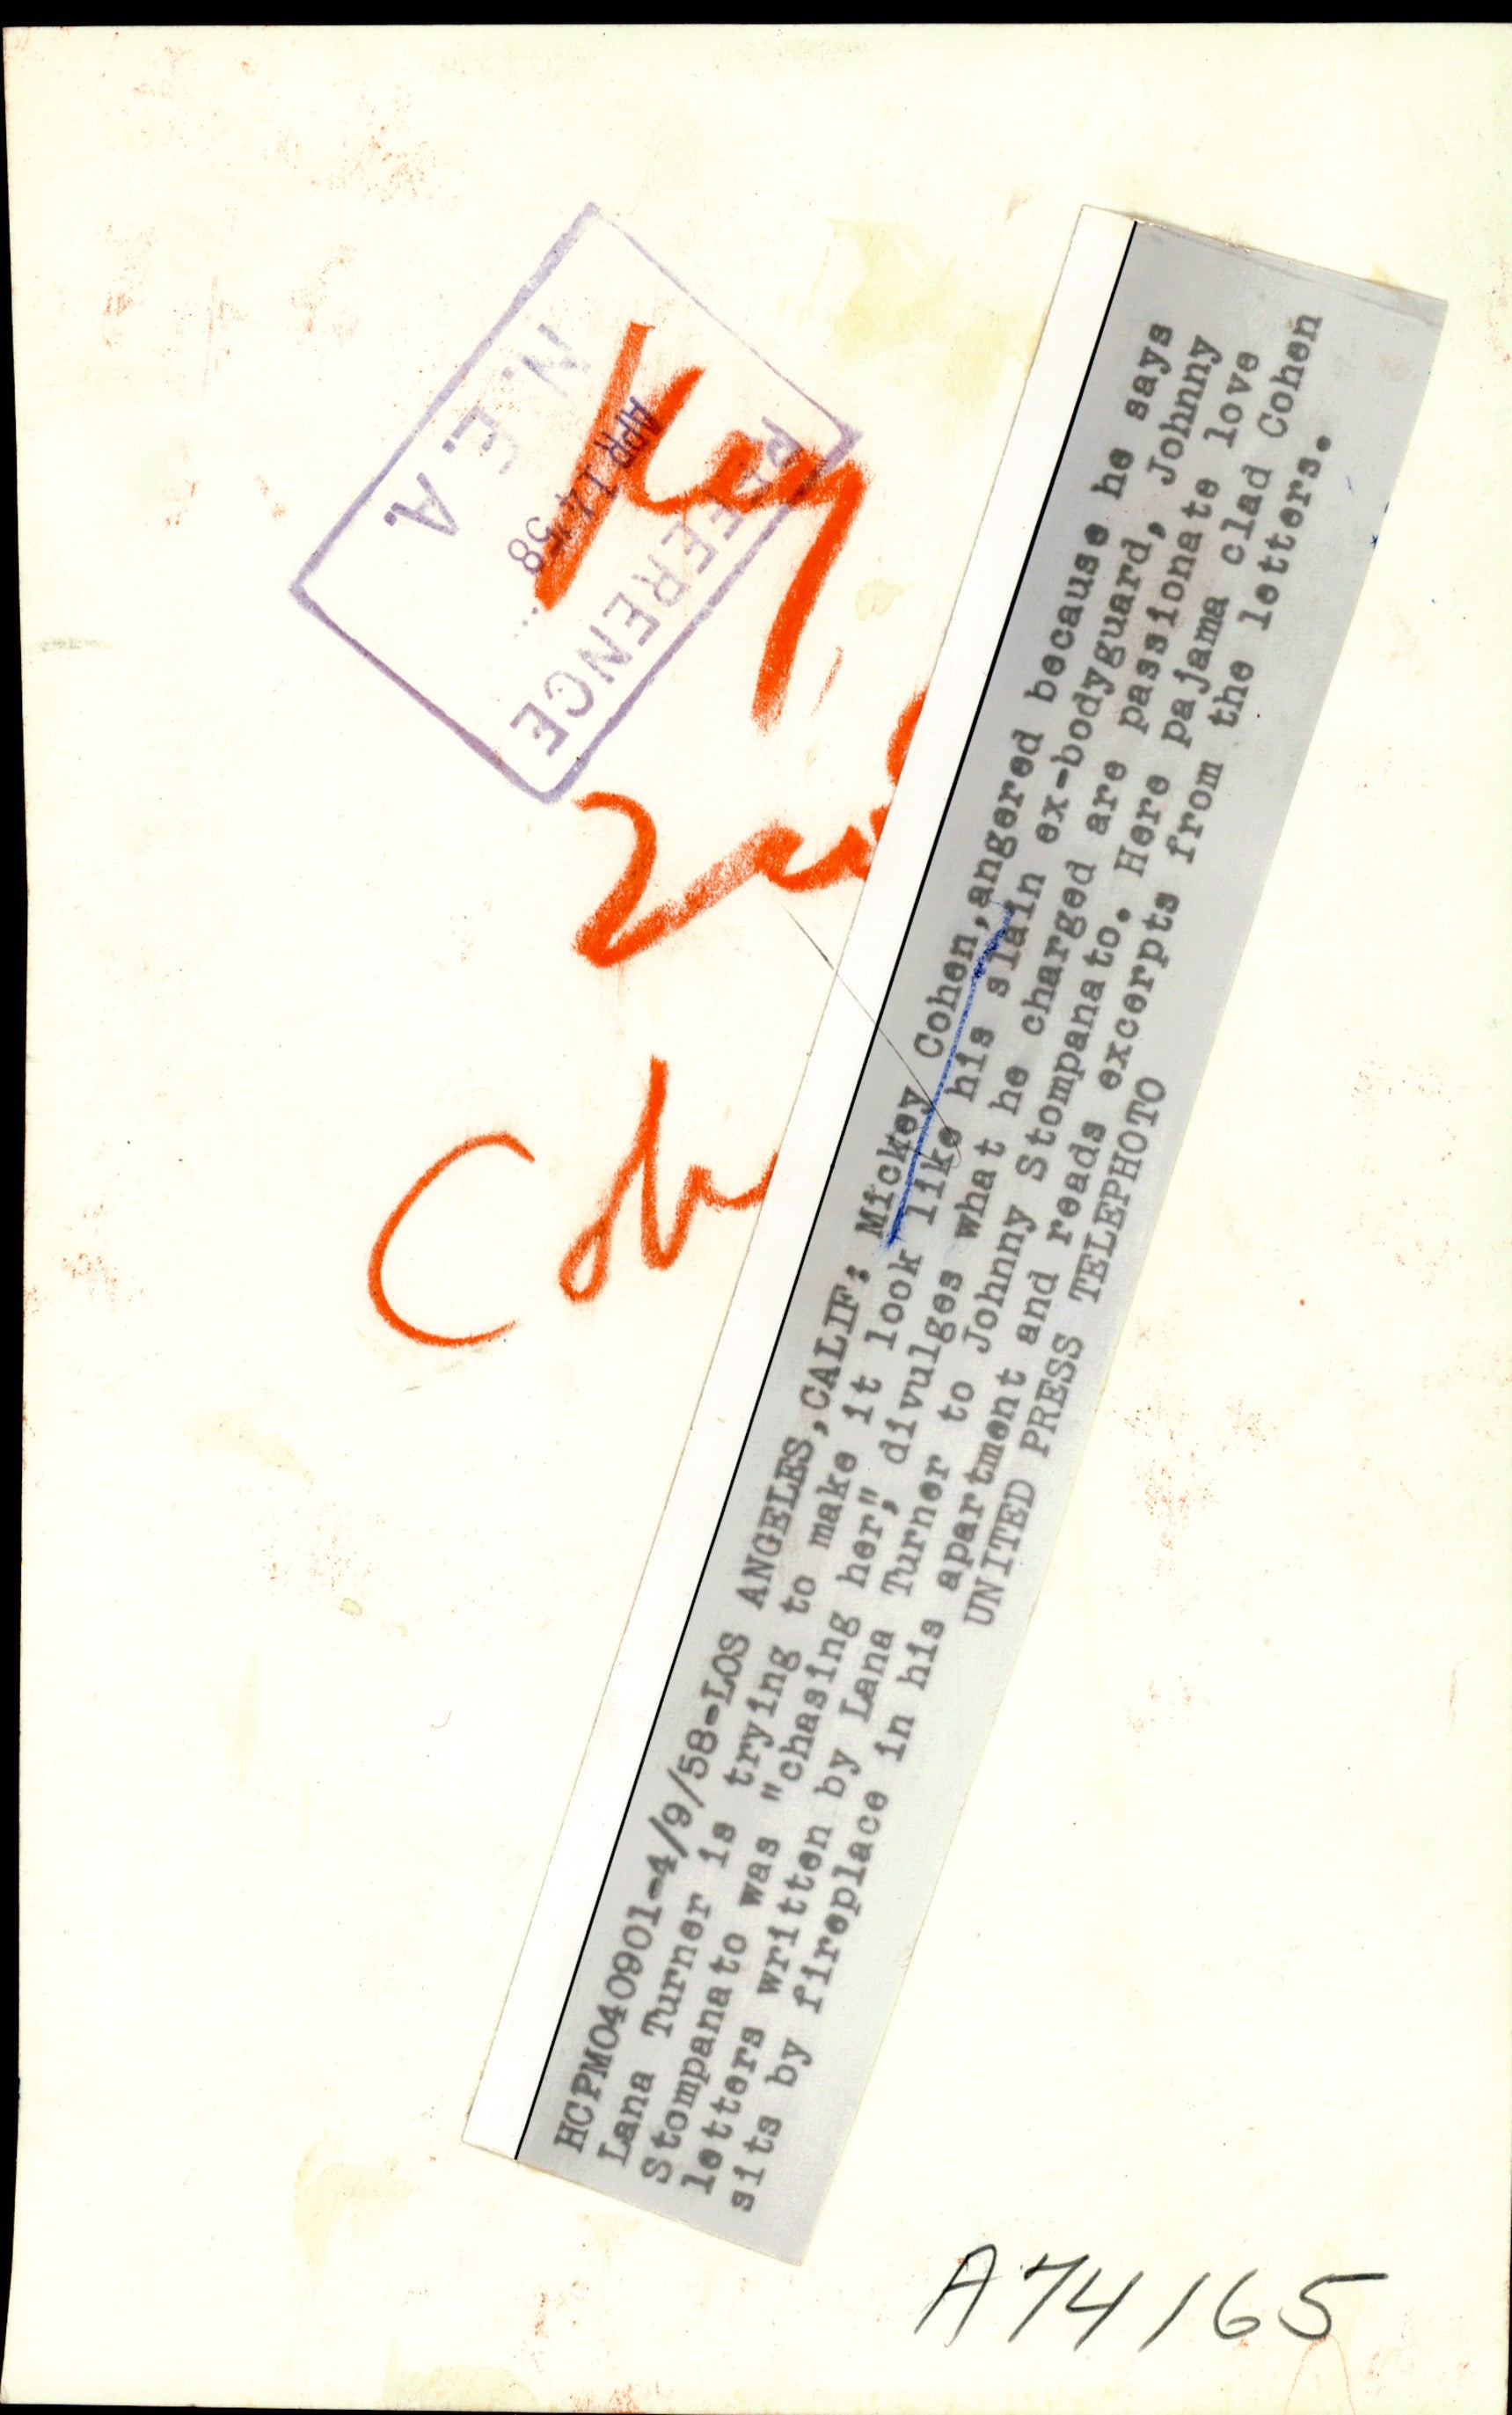 N.E.A.
APR 14 '58
REFERENCE
HCPM040901-4/9/58-LOS ANGELES,CALIF: Mickey Cohen,angered because he says
Lana Turner is trying to make it look like his slain ex-bodyguard, Johnny
Stompanato was "chasing her", divulges what he charged are passionate love
letters written by Lana Turner to Johnny Stompanato. Here pajama clad Cohen
sits by fireplace in his apartment and reads excerpts from the letters.
UNITED PRESS TELEPHOTO
A74165